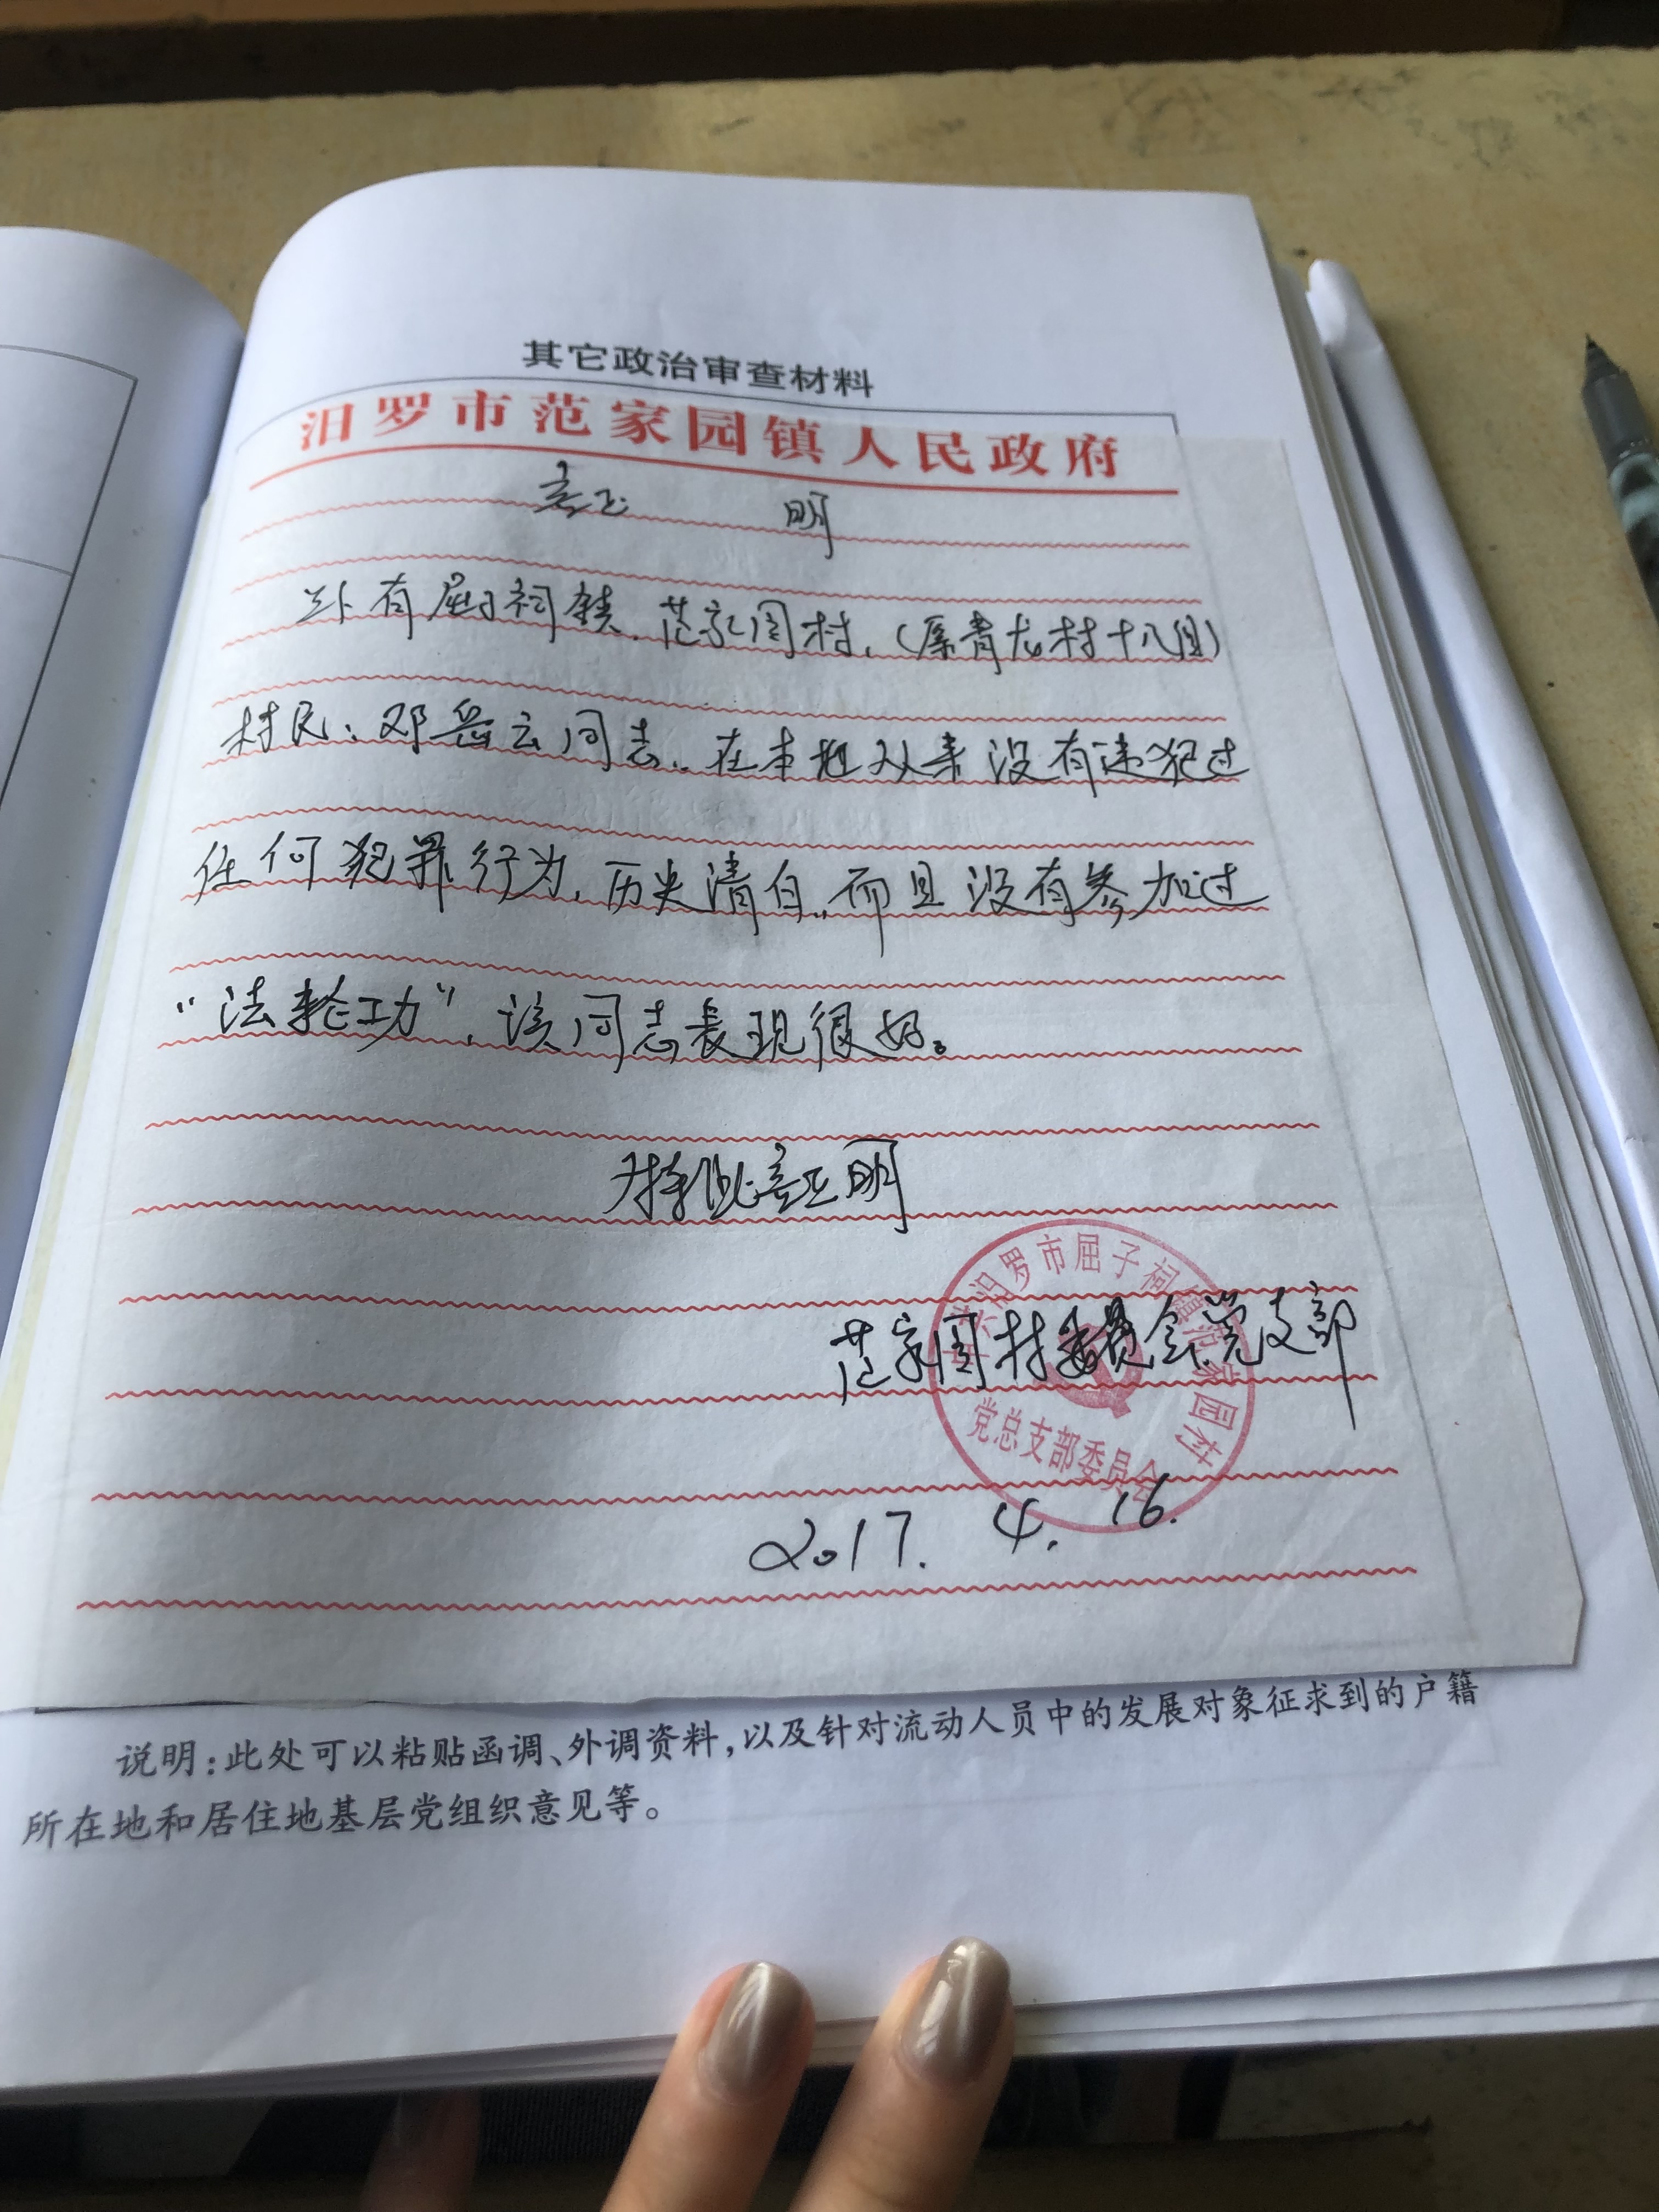 其它政治审查材料
汨罗市范家园镇人民政府
证 明
兹有屈子祠镇、范家园村、(原青龙村十八组)
村民:邓岳云同志、在本地从来没有违犯过
任何犯罪行为、历史清白、而且没有参加过
“法轮功”、该同志表现很好。
特此证明
范家园村委员会党支部
中共汨罗市屈子祠镇范家园村
党总支部委员会
2017. 4. 16.
说明:此处可以粘贴函调、外调资料,以及针对流动人员中的发展对象征求到的户籍
所在地和居住地基层党组织意见等。